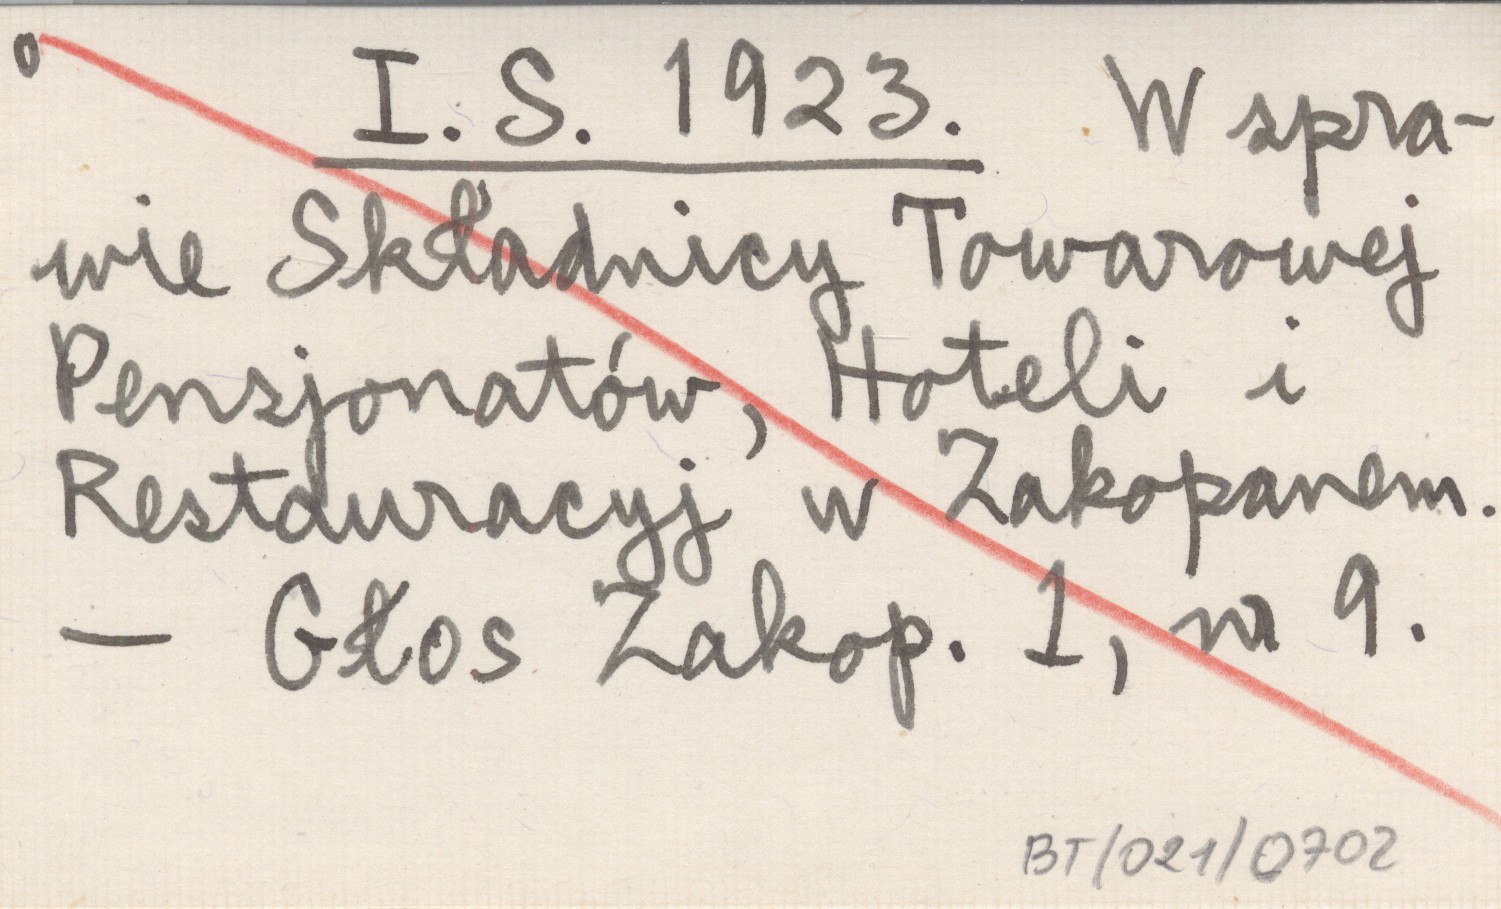 o I. S. 1923. W spra-
wie Składnicy Towarowej
Pensjonatów, Hoteli i
Restauracyj w Zakopanem.
— Głos Zakop. 1, nr 9.
BT/021/0702